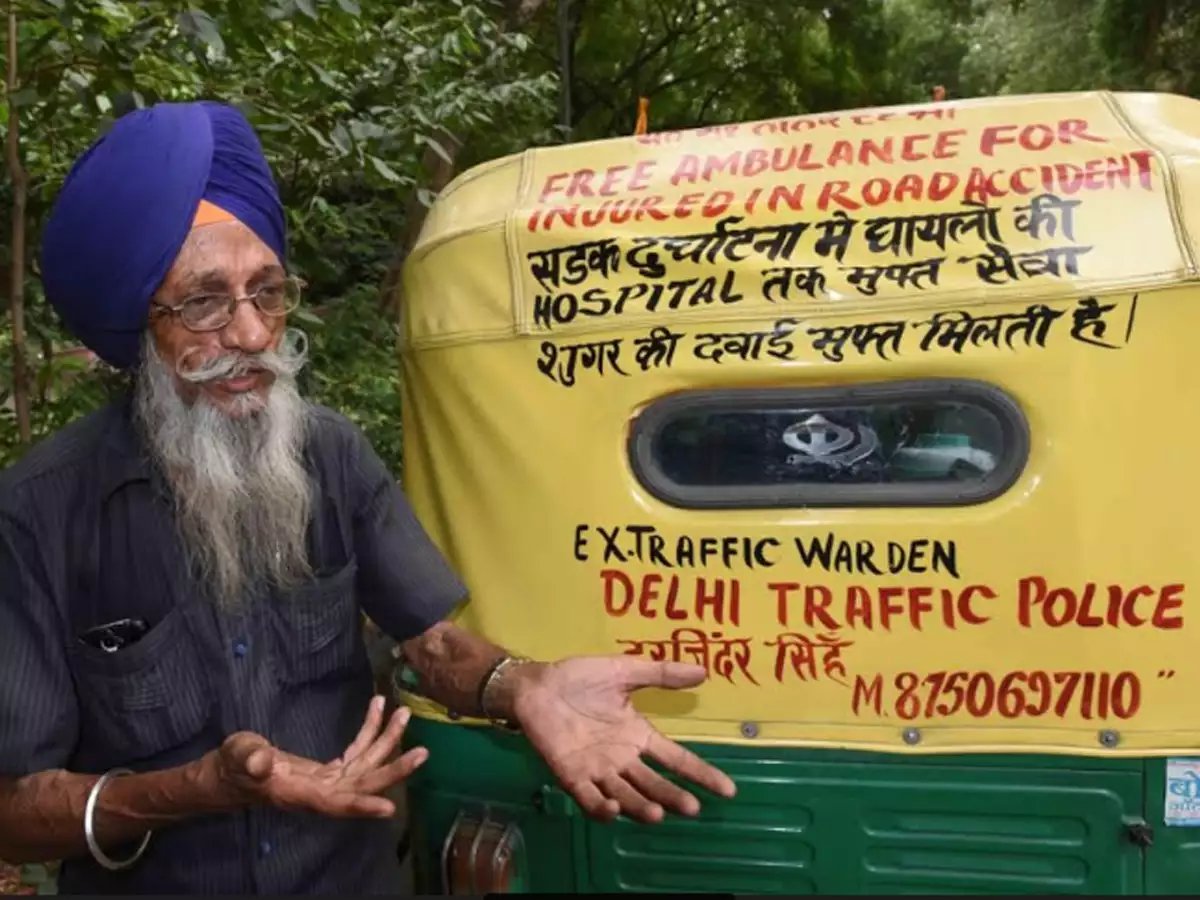 FREE AMBULANCE FOR
INJURED IN ROAD ACCIDENT
सडक दुर्घाटना मे घायलो की
HOSPITAL तक मुफ्त सेवा
शुगर की दवाई मुफ्त मिलती है।
EX.TRAFFIC WARDEN
DELHI TRAFFIC POLICE
सिहँ
M.8750697110 "